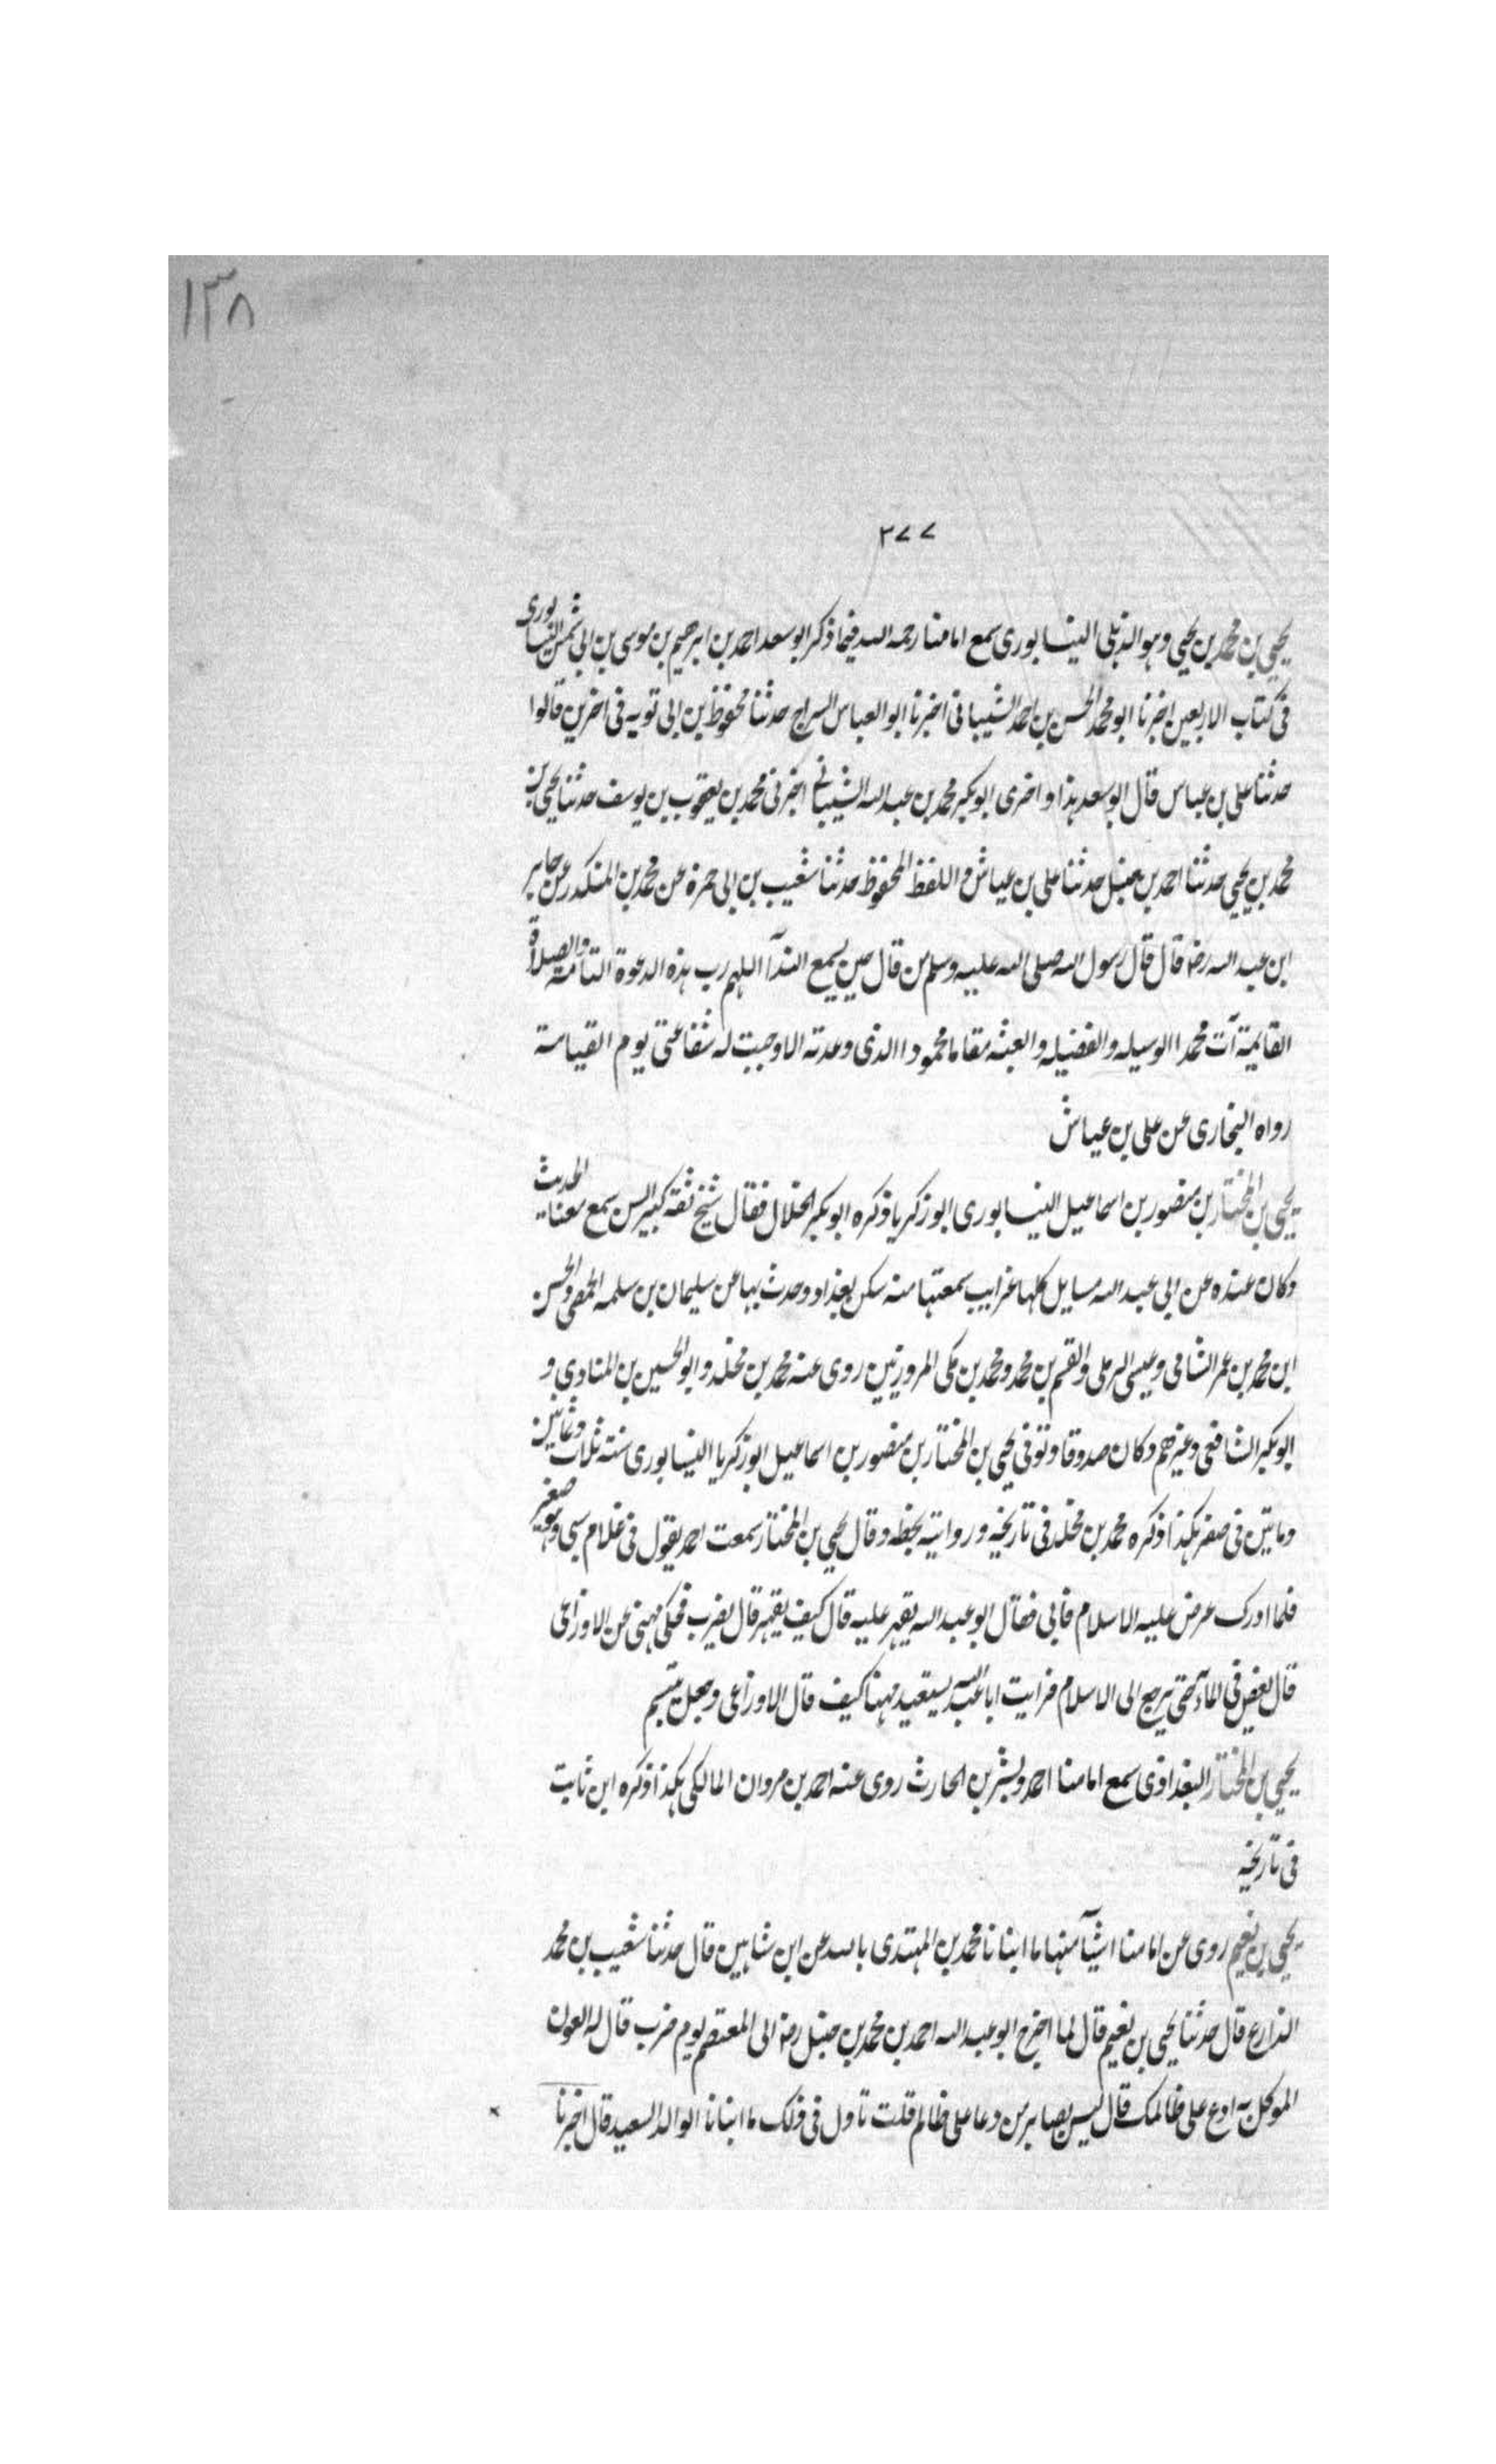 ١٣٨
٢٧٧
يحيى بن محمد بن يحيى وهو الذهلي النيسابورى سمع امامنا رحمه الله فيما ذكر ابو سعد احمد بن ابرهيم بن موسى بن ابى شمس النيسابورى
فى كتاب الاربعين اخبرنا ابو محمد الحسن بن احمد الشيبانى اخبرنا ابو العباس السراج حدثنا محفوظ بن ابى توبه فى اخرين قالوا
حدثنا على بن عباس قال ابو سعد هذا واخبرى ابو بكر محمد بن عبد الله الشيبانى اخبرنى محمد بن يعقوب بن يوسف حدثنا يحيى بن
محمد بن يحيى حدثنا احمد بن حنبل حدثنا على بن عياش واللفظ لمحفوظ حدثنا شعيب بن ابى حمزة عن محمد بن المنكدر عن جابر
ابن عبد الله رضه قال قال رسول الله صلى الله عليه وسلم من قال حين يسمع الندآ اللهم رب هذه الدعوة التامة والصلاة
القايمة آت محمدا الوسيله والفضيله والبعثه مقاما محمودا الذى وعدته الا وجبت له شفاعتى يوم القيامة
رواه البخارى عن على بن عياش
يحيى بن المختار بن منصور بن اسماعيل النيسابورى ابو زكريا ذكره ابو بكر الخلال فقال شيخ ثقة كبير السن سمع معنا الحديث
وكان عنده عن ابى عبد الله مسايل كلها غرايب سمعتها منه سكن بغداد وحدث بها عن سليمان بن سلمه الحمصى والحسن
ابن محمد بن عمر الشافى وعيسى الرملى والقسم بن محمد ومحمد بن مكى المروزيين روى عنه محمد بن مخلد وابو الحسين بن المنادى و
ابو بكر الشافعى وغيرهم وكان صدوقا وتوفى يحيى بن المختار بن منصور بن اسماعيل ابو زكريا النيسابورى سنة ثلاث وثمانين
وماتين فى صفر هكذا ذكره محمد بن مخلد فى تاريخه وروايته بخطه وقال يحيى بن المختار سمعت احمد يقول فى غلام سبى وهو صغير
فلما ادرك عرض عليه الاسلام فابى فقال ابو عبد الله يقهر عليه قال كيف يقهر قال يضرب فحكى مهنى عن الاوزاعى
قال يغض فى المآء حتى يرجع الى الاسلام فرايت ابا عبد الله يستعيد مهنا كيف قال الاوزاعى وجعل يتبسم
يحيى بن المختار البغدادى سمع امامنا احمد وبشر بن الحارث روى عنه احمد بن مروان المالكى هكذا ذكره ابن ثابت
فى تاريخه
يحيى بن نعيم روى عن امامنا اشيآ منها ما انبانا محمد بن المهتدى بالله عن ابن شاهين قال حدثنا شعيب بن محمد
الذارع قال حدثنا يحيى بن نعيم قال لما اخرج ابو عبد الله احمد بن محمد بن حنبل رضه الى المعتصم يوم ضرب قال له العون
الموكل به ادع على ظالمك قال ليس بصابر من دعا على ظالم قلت تاول فى ذلك ما انبانا الوالد السعيد قال اخبرنا